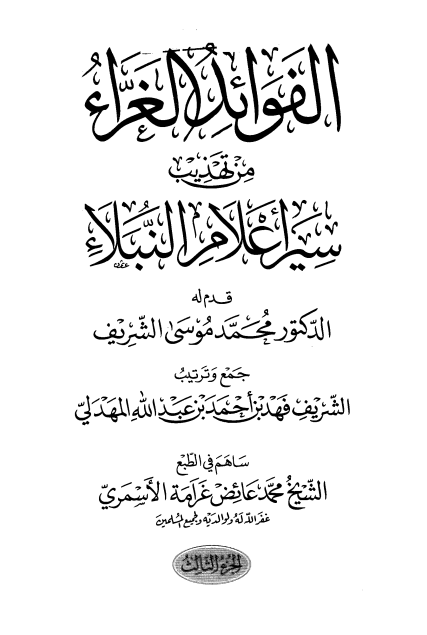 الفَوَائِدُ الغَرَّاءُ
مِنْ تَهْذِيْبِ
سِيَرِ أَعْلَامِ النُّبَلَاءِ
قدم له
الدكتور محمَّد مُوسَى الشّرِيف
جَمْع وَتَرتيبُ
الشَّرِيفِ فَهْد بْن أَحْمَد بْن عَبْد اللهِ المهْدَليّ
سَاهَمَ فِي الطّبْع
الشَّيْخُ مُحمَّد عَائِض غَرَامَة الأَسْمَرِيّ
غفر الله له ولوالديه ولجميع المسلمين
الجزءُ الثالث